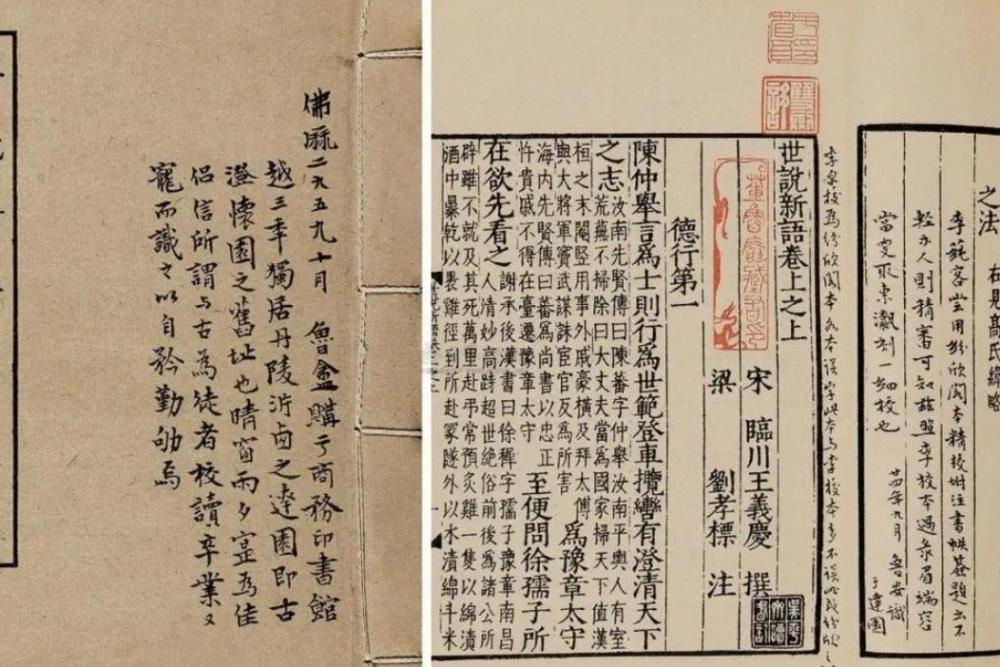 佛曆二九五九十月 魯盦購于商務印書館
越三年獨居丹陵沜鹵之達園即古
澄懷園之舊址也晴窗雨夕寔為佳
侶信所謂与古為徒者校讀卒業又
寵而識之以自矜勤劬焉
之法 右見高氏緯略
李蒓客嘗用紛欣閣本精校坿注書帙簽題亦不
輕示人則精審可知茲照李校本過录眉端容
當更取束瀫刻一細校也
廿四年九月 魯安識
于達園
世說新語卷上之上
董魯盦藏書印
宋 臨川王義慶 撰
梁 劉孝標 注
德行第一
陳仲舉言爲士則行爲世範登車攬轡有澄清天下
之志
汝南先賢傳曰陳蕃字仲舉汝南平輿人有室
荒蕪不掃除曰大丈夫當爲國家掃天下值漢
桓之末閹豎用事外戚豪橫及拜太傅
與大將軍竇武謀誅宦官反爲所害
爲豫章太守
海內先賢傳曰蕃爲尚書以忠正
忤貴戚不得在臺遷豫章太守
至便問徐孺子所
在欲先看之
謝承後漢書曰徐穉字孺子豫章南昌
人清妙高跱超世絕俗前後爲諸公所
辟雖不就及其死萬里赴弔常預炙雞一隻以綿漬
酒中暴乾以裹雞徑到所赴冢隧外以水漬綿斗米